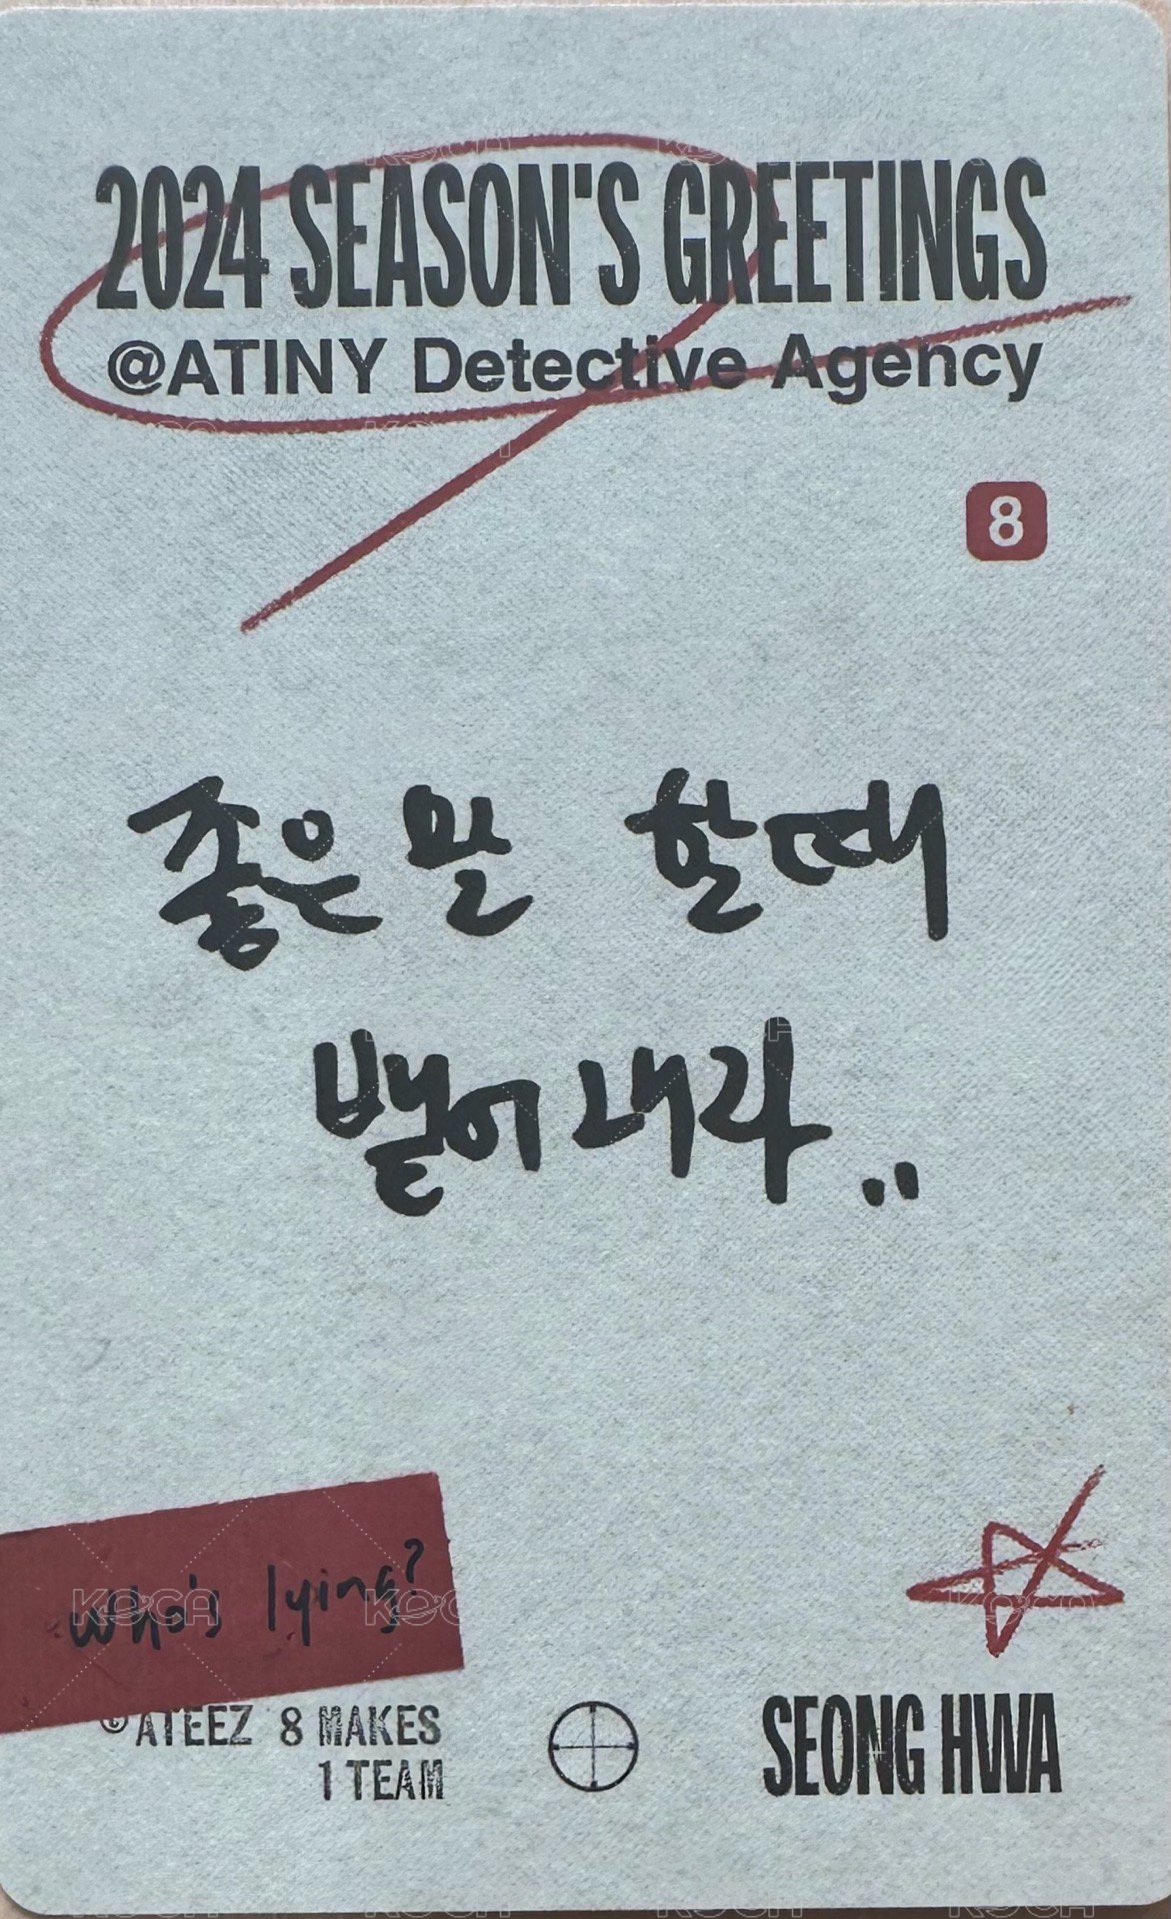 2024 SEASON'S GREETINGS
@ATINY Detective Agency
8
좋은 말 할때
뱉어 내라..
who's lying?
© ATEEZ 8 MAKES
1 TEAM
SEONG HWA
KOCA